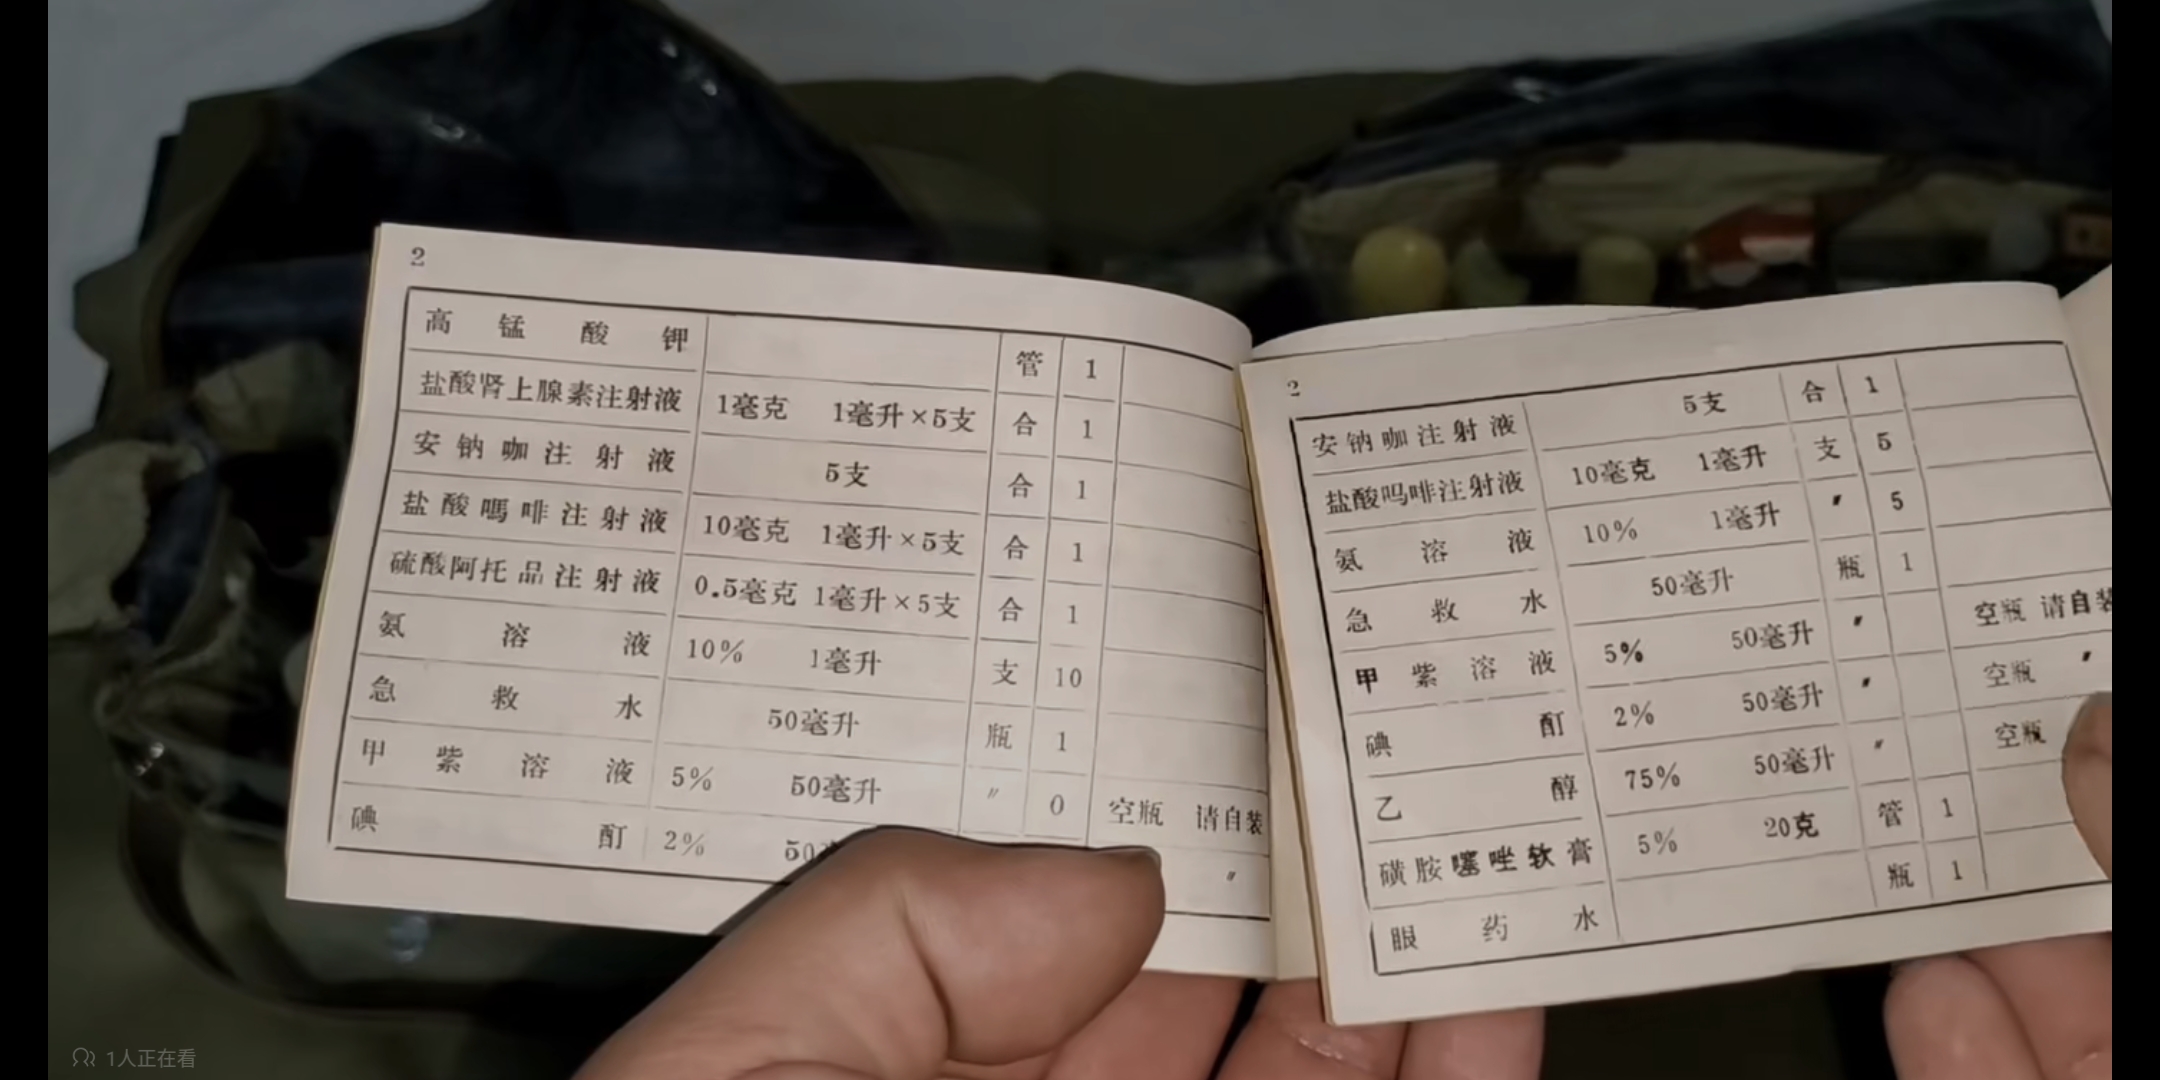 2
高锰酸钾 管 1
盐酸肾上腺素注射液 1毫克 1毫升×5支 合 1
安钠咖注射液 5支 合 1
盐酸嗎啡注射液 10毫克 1毫升×5支 合 1
硫酸阿托品注射液 0.5毫克 1毫升×5支 合 1
氨溶液 10% 1毫升 支 10
急救水 50毫升 瓶 1
甲紫溶液 5% 50毫升 〃 0 空瓶 请自装
碘酊 2% 50 〃
2
安钠咖注射液 5支 合 1
盐酸吗啡注射液 10毫克 1毫升 支 5
氨溶液 10% 1毫升 〃 5
急救水 50毫升 瓶 1
甲紫溶液 5% 50毫升 〃 空瓶 请自装
碘酊 2% 50毫升 〃 空瓶 〃
乙醇 75% 50毫升 〃 空瓶
磺胺噻唑软膏 5% 20克 管 1
眼药水 瓶 1
1人正在看